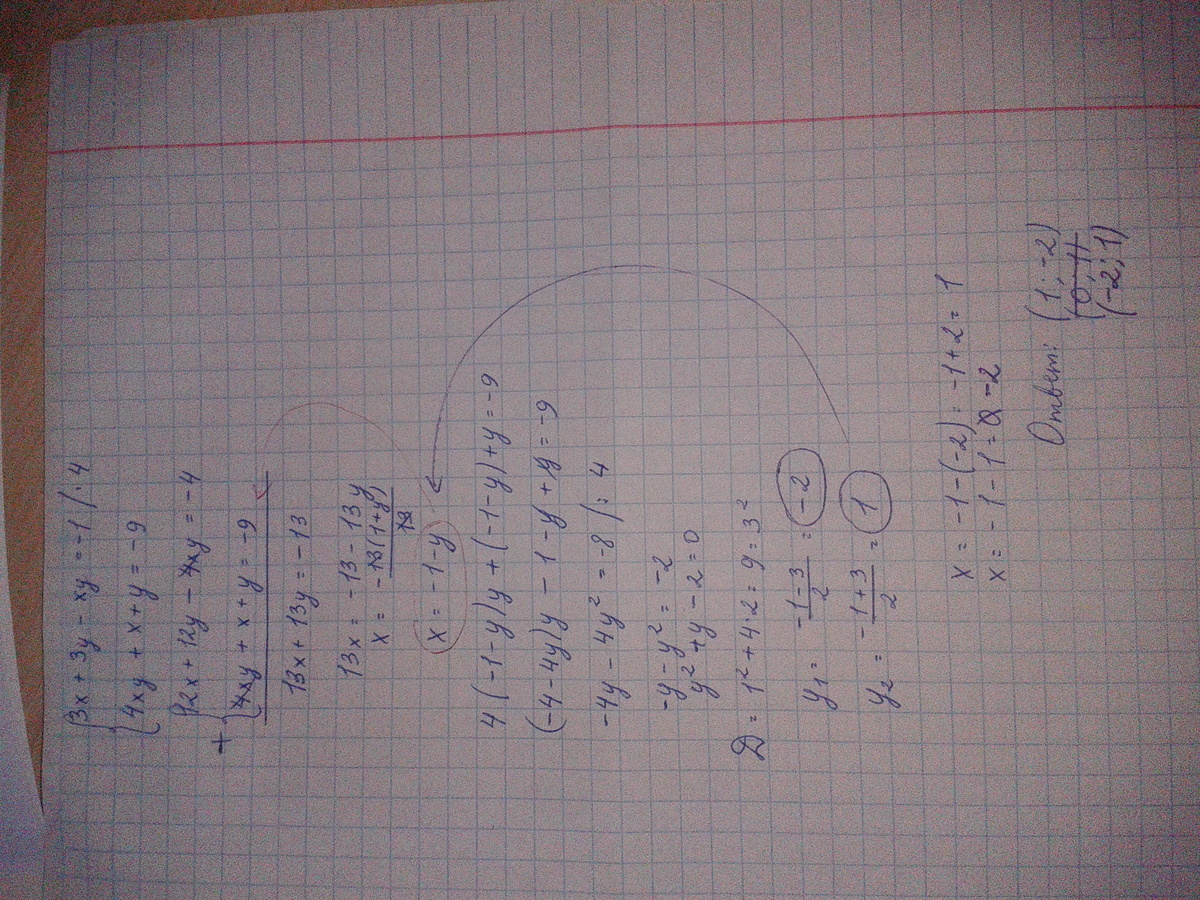 {3x + 3y - xy = -1 / · 4
{4xy + x + y = -9
{12x + 12y - 4xy = -4
+ {4xy + x + y = -9
13x + 13y = -13
13x = -13 - 13y
x = -13(1+y)/13
x = -1-y
4(-1-y)y + (-1-y)+y = -9
(-4-4y)y - 1 - y + y = -9
-4y - 4y² = -8 / : 4
-y - y² = -2
y² + y - 2 = 0
D = 1² + 4·2 = 9 = 3²
y₁ = -1-3/2 = -2
y₂ = -1+3/2 = 1
x = -1-(-2) = -1+2 = 1
x = -1-1 = -2
Ответ: (1; -2)
(0; 1)
(-2; 1)